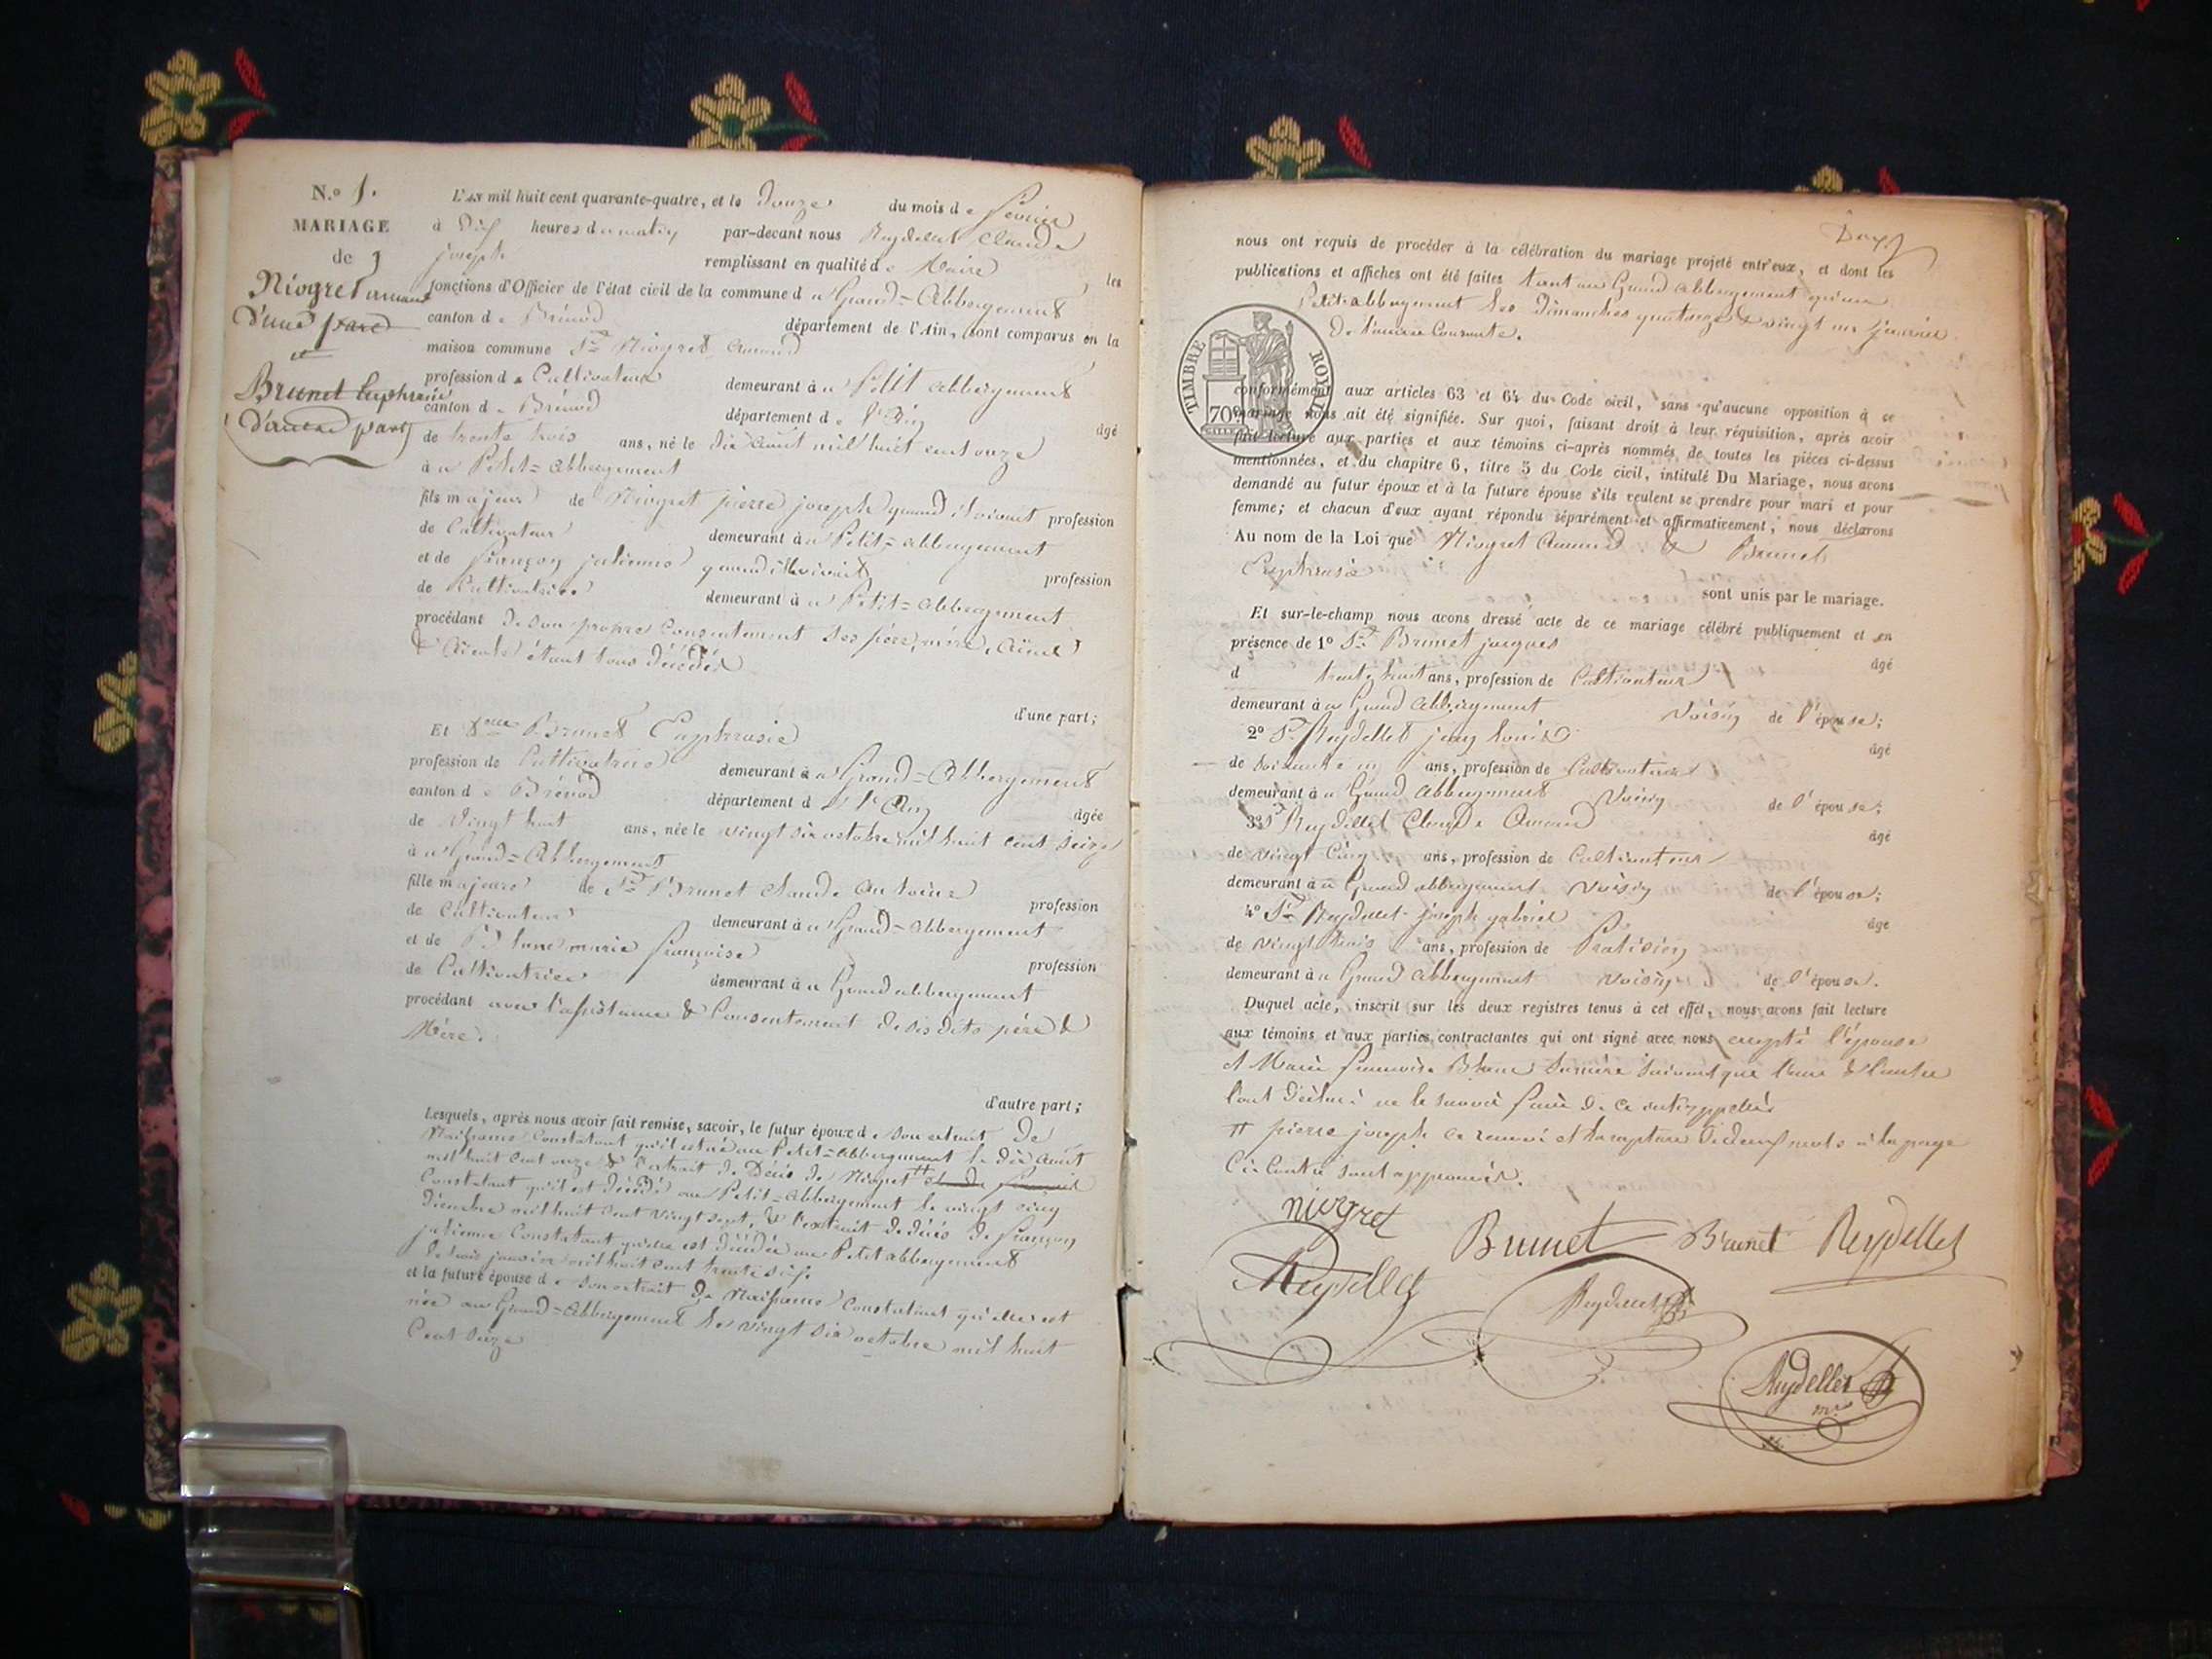 N.o 1.
MARIAGE
de
Niogret amand
d'une part
et
Brunet Euphrasie
d'autre part
L'AN mil huit cent quarante-quatre, et le douze du mois de février
à dix heures du matin par-devant nous Reydellet Claude
joseph remplissant en qualité de Maire les
fonctions d'Officier de l'état civil de la commune du Grand=Abbergement
canton de Brénod département de l'Ain, sont comparus en la
maison commune Sr Niogret Amand
profession de Cultivateur demeurant à u Petit abbergement
canton de Brénod département de l'Ain âgé
de trente trois ans, né le dix aout mil huit cent onze
à u Petit=Abbergement
fils majeur de Niogret pierre joseph quand il vivait profession
de Cultivateur demeurant à u Petit=abbergement
et de françon julienne quand elle vivait profession
de Cultivatrice demeurant à u Petit=abbergement
procédant de son propre Consentement ses père, mère, aïeul
& aïeule étant tous décédés
d'une part;
Et Brunet Euphrasie
profession de Cultivatrice demeurant à u Grand=Abbergement
canton de Brénod département de l'Ain âgée
de vingt huit ans, née le vingt six octobre mil huit cent seize
à u Grand=Abbergement
fille majeure de Sr Brunet Claude Antoine profession
de Cultivateur demeurant à u Grand=Abbergement
et de Blanc marie françoise profession
de Cultivatrice demeurant à u Grand abbergement
procédant avec l'assistance & Consentement de ses dits père &
Mère.
d'autre part;
Lesquels, après nous avoir fait remise, savoir, le futur époux de son extrait de
Naissance Constatant qu'il est né au Petit=Abbergement le dix Août
mil huit cent onze & l'extrait de Décès de Niogret # et de
Constatant qu'il est décédé au Petit=Abbergement le vingt cinq
décembre mil huit cent vingt sept, & l'extrait de décès de françon
julienne Constatant qu'elle est décédée au Petit abbergement
le trois janvier mil huit cent trente six.
et la future épouse de son extrait de Naissance Constatant qu'elle est
née au Grand=Abbergement le vingt six octobre mil huit
Cent seize
nous ont requis de procéder à la célébration du mariage projeté entr'eux, et dont les
publications et affiches ont été faites tant au Grand Abbergement qu'au
Petit abbergement les dimanches quatorze & vingt un janvier
de l'année Courante.
TIMBRE ROYAL
70c
conformément aux articles 63 et 64 du Code civil, sans qu'aucune opposition à ce
mariage nous ait été signifiée. Sur quoi, faisant droit à leur réquisition, après avoir
fait lecture aux parties et aux témoins ci-après nommés de toutes les pièces ci-dessus
mentionnées, et du chapitre 6, titre 5 du Code civil, intitulé Du Mariage, nous avons
demandé au futur époux et à la future épouse s'ils veulent se prendre pour mari et pour
femme; et chacun d'eux ayant répondu séparément et affirmativement, nous déclarons
Au nom de la Loi que Niogret Amand & Brunet
Euphrasie
sont unis par le mariage.
Et sur-le-champ nous avons dressé acte de ce mariage célébré publiquement et en
présence de 1o Sr Brunet jacques âgé
d trente huit ans, profession de Cultivateur
demeurant à u Grand Abbergement voisin de l'épouse;
2o Sr Reydellet jean Louis âgé
de soixante un ans, profession de Cultivateur
demeurant à u Grand Abbergement voisin de l'épouse;
3o Sr Reydellet Claude Amand âgé
de vingt Cinq ans, profession de Cultivateur
demeurant à u Grand abbergement voisin de l'épouse;
4o Sr Reydellet joseph gabriel âgé
de vingt trois ans, profession de Praticien
demeurant à u Grand Abbergement voisin de l'épouse.
Duquel acte, inscrit sur les deux registres tenus à cet effet, nous avons fait lecture
aux témoins et aux parties contractantes qui ont signé avec nous excepté l'épouse
et Marie françoise Blanc sa mère suivant que l'une & l'autre
l'ont déclaré ne le savoir faire de ce interpellées
# pierre joseph Ce renvoi et la rapture de deux mots à la page
Ci Contre sont approuvés.
niogret
Brunet Brunet Reydellet
Reydellet
Reydellet
Reydellet
mre